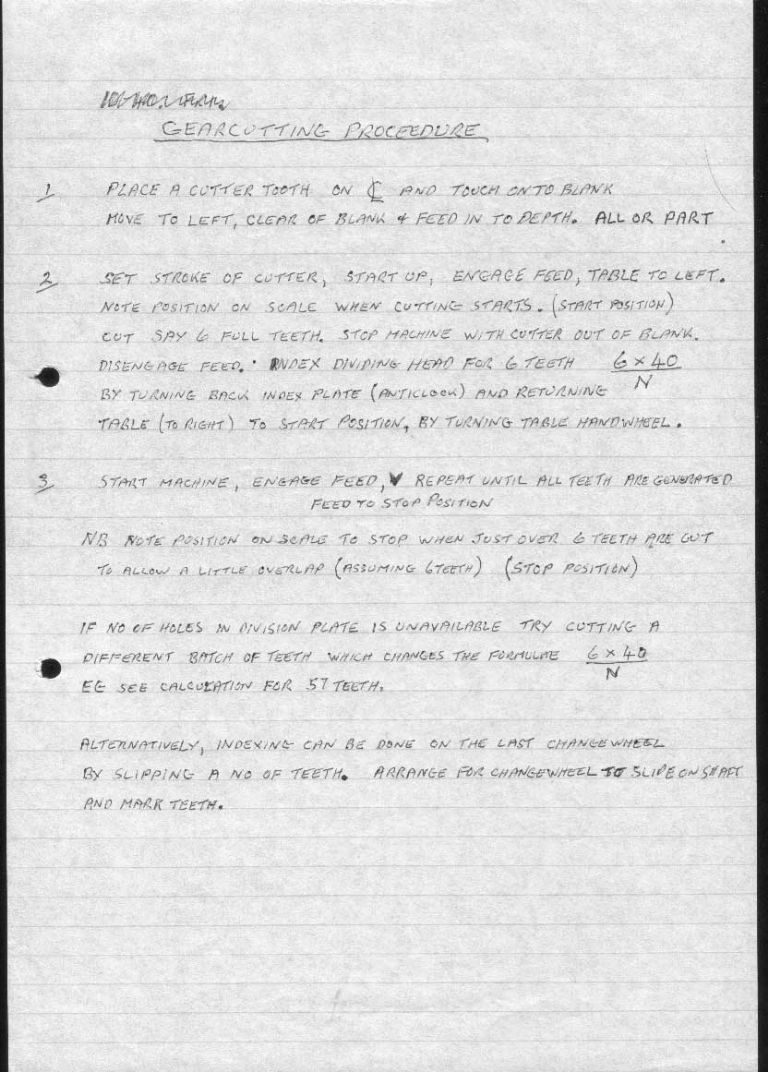 GEARCUTTING PROCEEDURE
1 PLACE A CUTTER TOOTH ON ℄ AND TOUCH ONTO BLANK
MOVE TO LEFT, CLEAR OF BLANK & FEED IN TO DEPTH. ALL OR PART.
2 SET STROKE OF CUTTER, START UP, ENGAGE FEED, TABLE TO LEFT.
NOTE POSITION ON SCALE WHEN CUTTING STARTS. (START POSITION)
CUT SAY 6 FULL TEETH. STOP MACHINE WITH CUTTER OUT OF BLANK.
DISENGAGE FEED. INDEX DIVIDING HEAD FOR 6 TEETH 6 × 40
N
BY TURNING BACK INDEX PLATE (ANTICLOCK) AND RETURNING
TABLE (TO RIGHT) TO START POSITION, BY TURNING TABLE HANDWHEEL.
3 START MACHINE, ENGAGE FEED, V REPEAT UNTIL ALL TEETH ARE GENERATED
FEED TO STOP POSITION
NB NOTE POSITION ON SCALE TO STOP WHEN JUST OVER 6 TEETH ARE CUT
TO ALLOW A LITTLE OVERLAP (ASSUMING 6 TEETH) (STOP POSITION)
IF NO OF HOLES IN DIVISION PLATE IS UNAVAILABLE TRY CUTTING A
DIFFERENT BATCH OF TEETH WHICH CHANGES THE FORMULAE 6 × 40
N
EG SEE CALCULATION FOR 57 TEETH.
ALTERNATIVELY, INDEXING CAN BE DONE ON THE LAST CHANGEWHEEL
BY SLIPPING A NO OF TEETH. ARRANGE FOR CHANGEWHEEL TO SLIDE ON SHAFT
AND MARK TEETH.